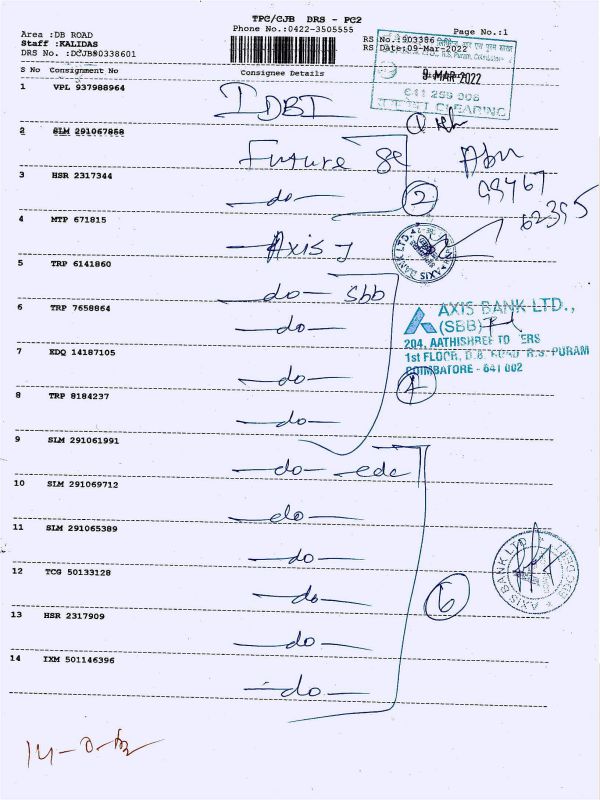 TPC/CJB DRS - PC2
Area :DB ROAD
Phone No.:0422-3505555
Page No.:1
Staff :KALIDAS
RS No.:903386
DRS No. :DCJB80338601
RS Date:09-Mar-2022
S No Consignment No Consignee Details
9 MAR 2022
641 299 006
CLEARING
1 VPL 937988964 IDBI
1
2 SLM 291067868 Future Ge
3 HSR 2317344 -do-
2
99467
62395
4 MTP 671815 Axis
AXIS BANK LTD.
5 TRP 6141860 -do- Sbb
6 TRP 7658864 -do-
AXIS BANK LTD.,
(SBB)
204, AATHISHREE TO ERS
1st FLOOR, D.B. ROAD R.S. PURAM
COIMBATORE - 641 002
7 EDQ 14187105 -do-
8 TRP 8184237 -do-
9 SLM 291061991 -do- edc
10 SLM 291069712 -do-
11 SLM 291065389 -do-
AXIS BANK LTD.
12 TCG 50133128 -do-
6
13 HSR 2317909 -do-
14 IXM 501146396 -do-